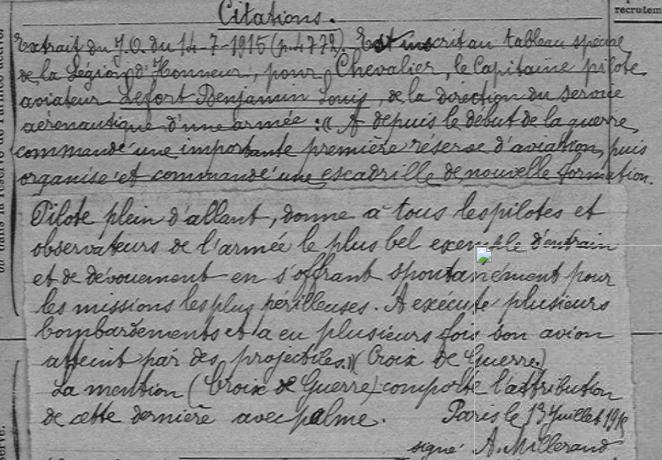 Citations.
recrutem
Extrait du J.O. du 14-7-1915 (p. 4772). Est inscrit au tableau spécial
de la Légion d'Honneur, pour Chevalier, le Capitaine pilote
aviateur Lefort Benjamin Louis, de la direction du service
aéronautique d'une armée : (( A depuis le début de la guerre,
commandé une importante première réserve d'aviation, puis
organisé et commandé une escadrille de nouvelle formation.
Pilote plein d'allant, donne à tous les pilotes et
observateurs de l'armée le plus bel exemple d'entrain
et de dévouement en s'offrant spontanément pour
les missions les plus périlleuses. A exécuté plusieurs
bombardements et a eu plusieurs fois son avion
atteint par des projectiles.)) (Croix de Guerre)
La mention (Croix de Guerre) comporte l'attribution
de cette dernière avec palme. Paris le 13 Juillet
signé A. Millerand